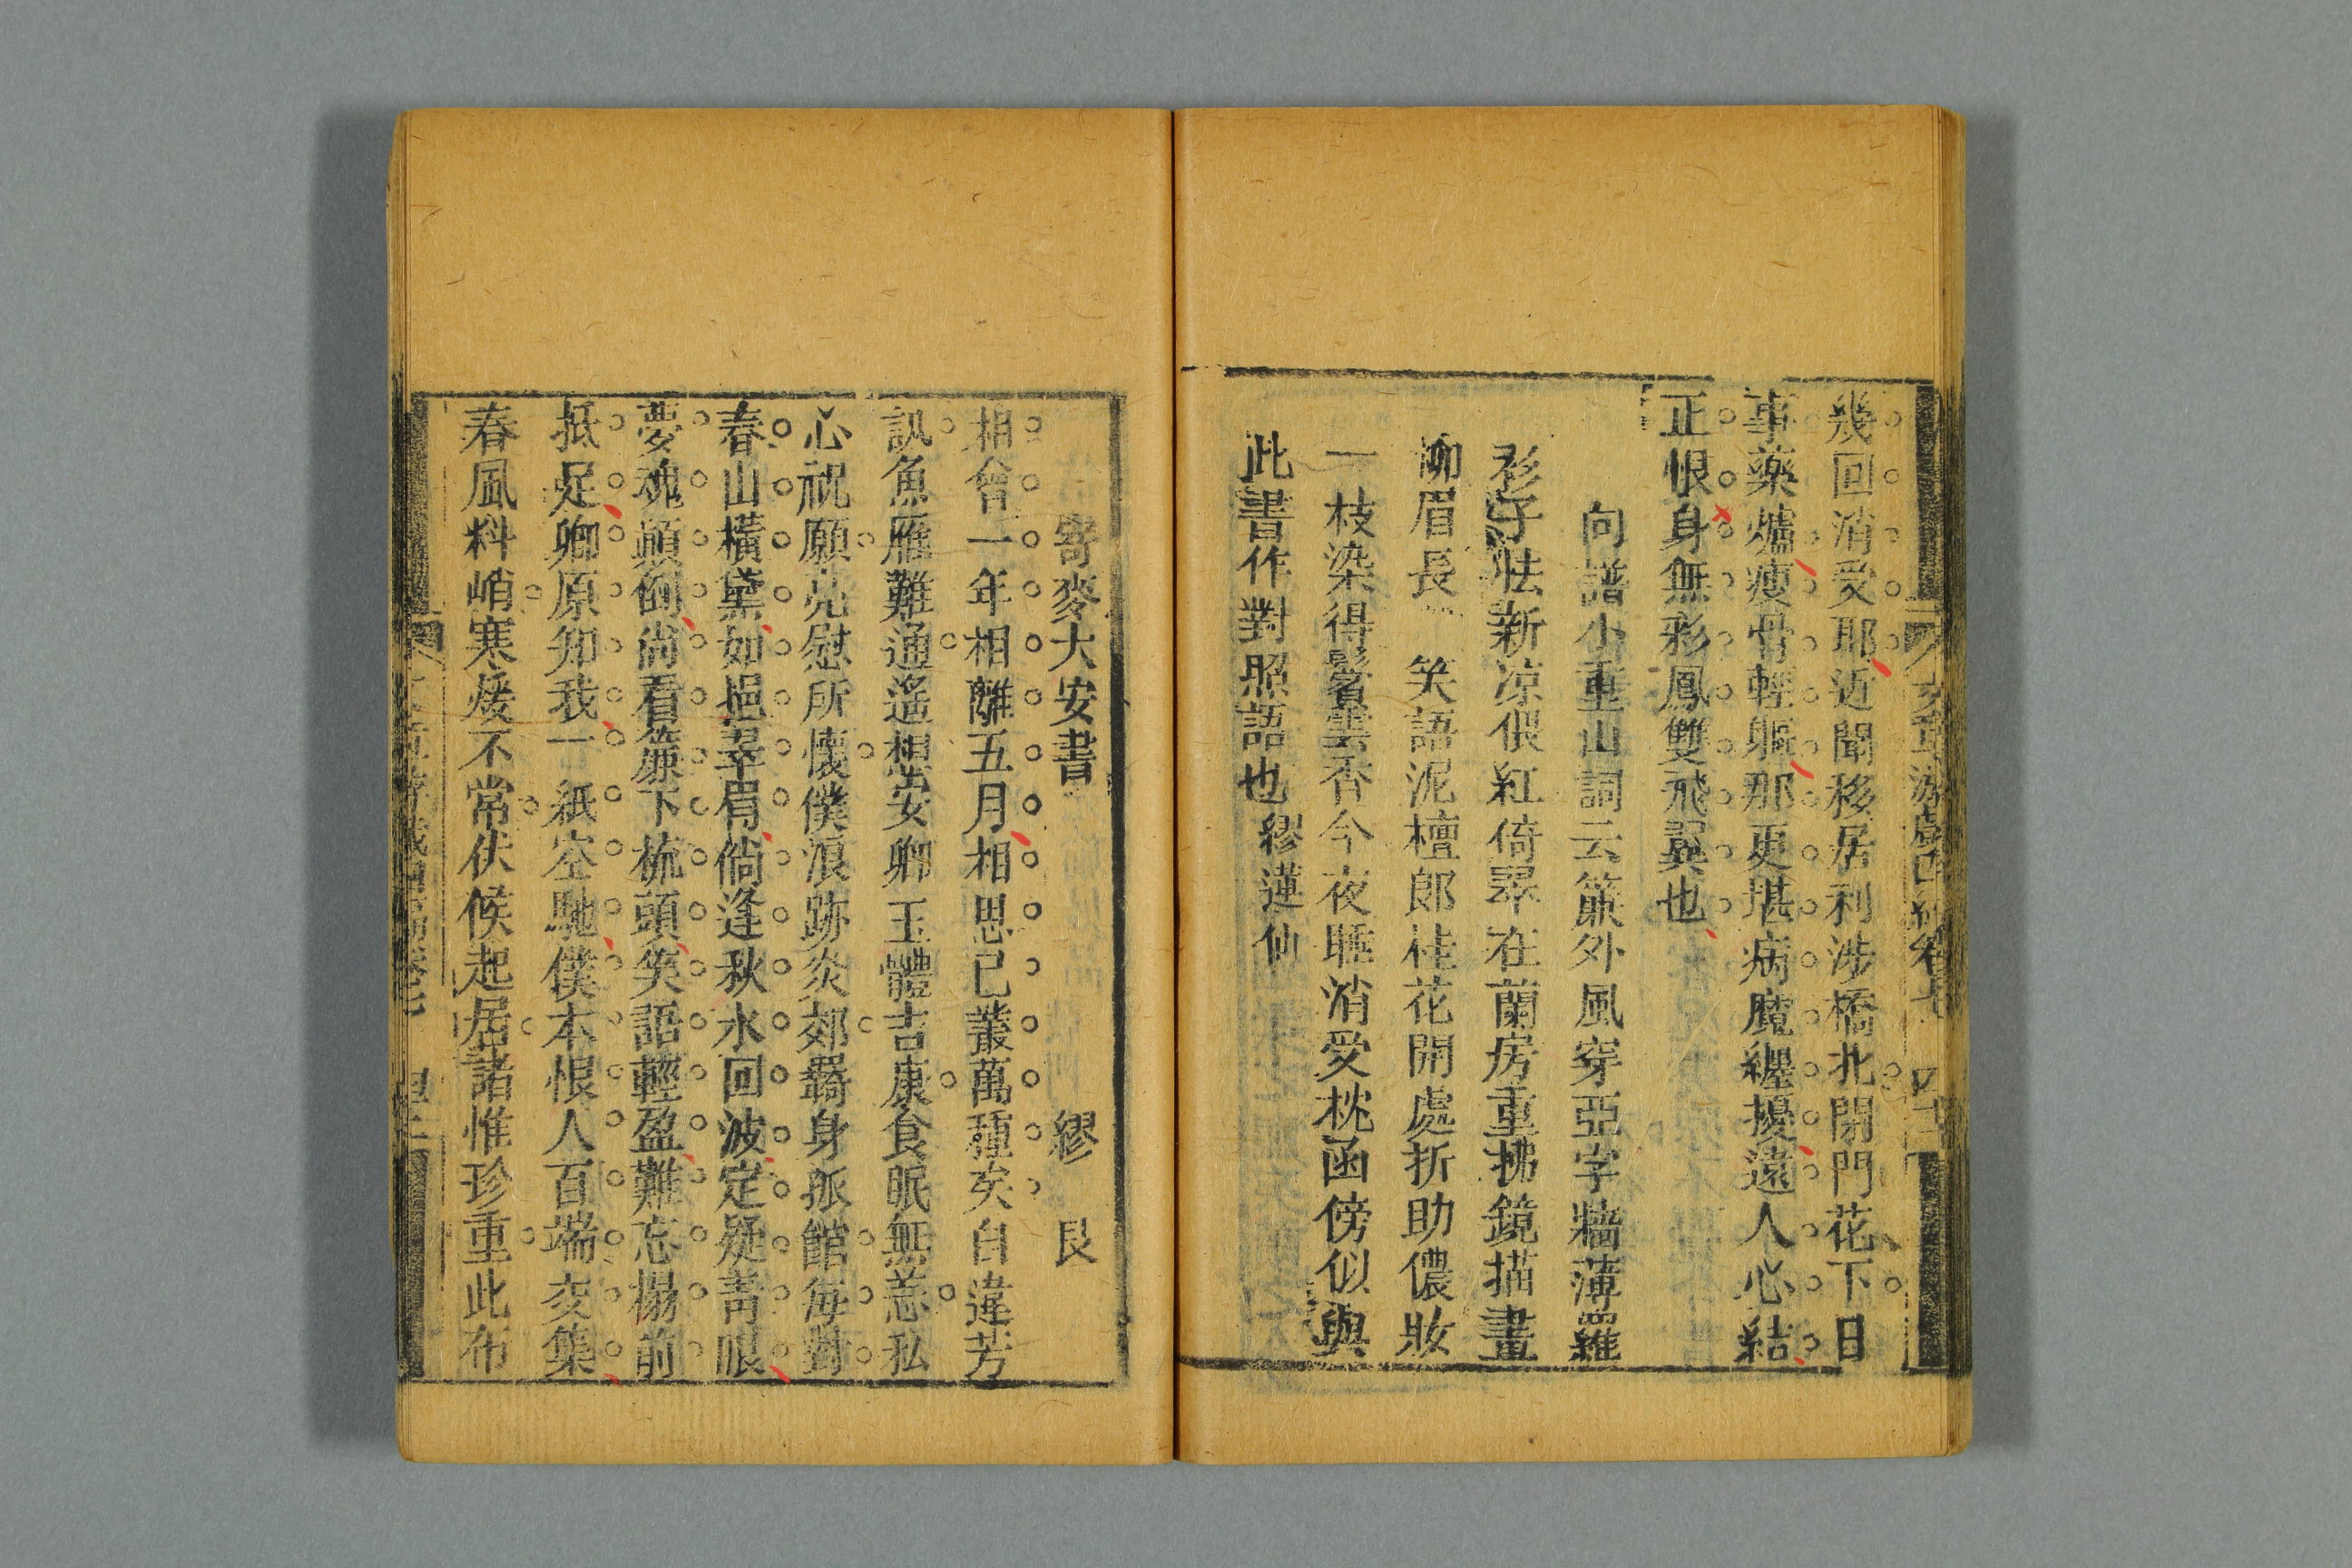 幾回消受耶近聞移居利涉橋北閉門花下日
事藥爐瘦骨輕軀那更堪病魔纏擾遠人心結
正恨身無彩鳳雙飛翼也
向譜小重山詞云簾外風穿亞字牆薄羅
衫子怯新凉偎紅倚翠在蘭房重拂鏡描畫
柳眉長 笑語泥檀郎桂花開處折助儂妝
一枝染得鬢雲香今夜睡消受枕函傍似與
此書作對照語也 繆蓮仙
寄麥大安書 繆艮
相會一年相離五月相思已叢萬種矣自違芳
訊魚雁難通遙想安卿玉體吉康食眠無恙私
心祝願亮慰所懷僕浪跡炎郊羈身孤館每對
春山橫黛如挹翠眉倘逢秋水回波定疑靑眼
夢魂顛倒尚看簾下梳頭笑語輕盈難忘榻前
抵足卿原知我一紙空馳僕本恨人百端交集
春風料峭寒煖不常伏候起居諸惟珍重此布